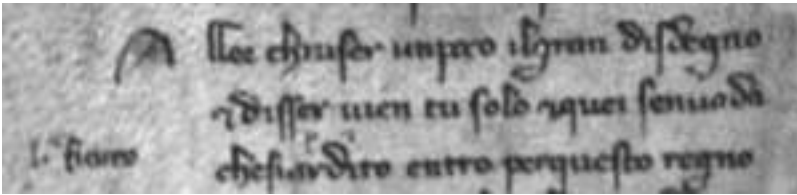 A llor chiuser unpoco ilgran disdegno
⁊disser uien tu solo ⁊quei senuada
chesiardito entro perquesto regno